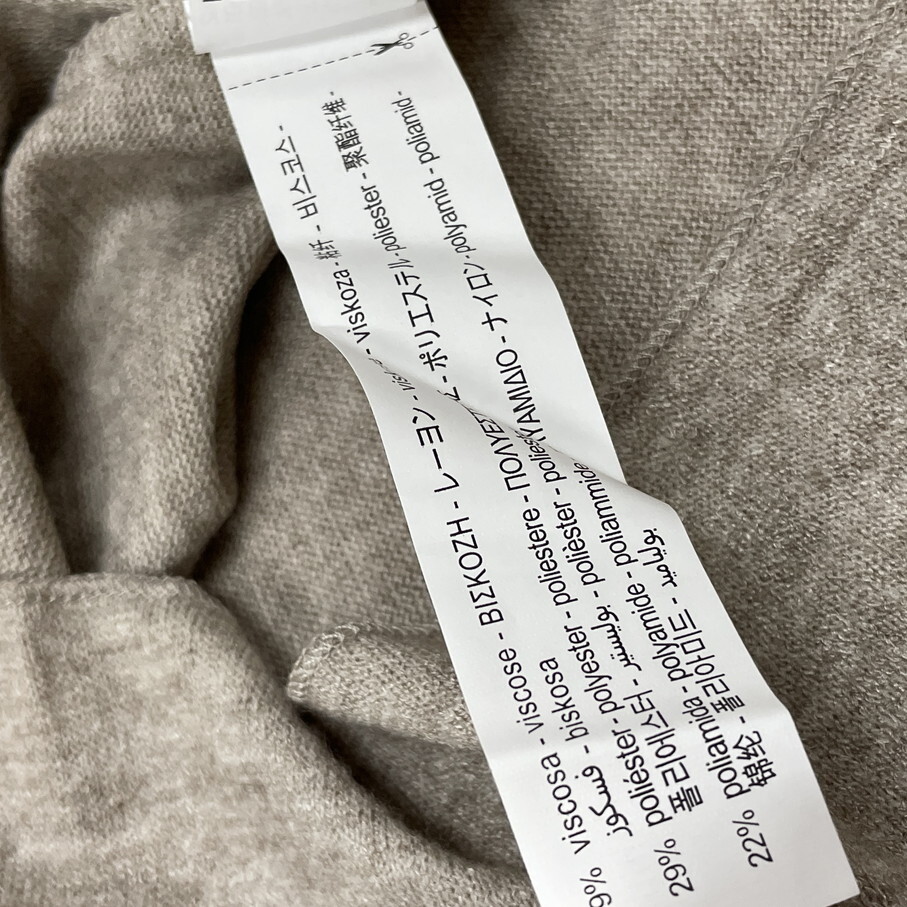 9% viscosa - viscose - ΒΙΣΚΟΖΗ - レーヨン - viskoza - 粘纤 - 비스코스 -
فسكوز - biskosa
29% poliéster - polyester - poliestere - ポリエステル - poliester - 聚酯纤维 -
폴리에스터 - بوليستير - polièster
22% poliamida - polyamide - poliammide - ナイロン - polyamid - poliamid -
锦纶 - 폴리아미드 - بولياميد